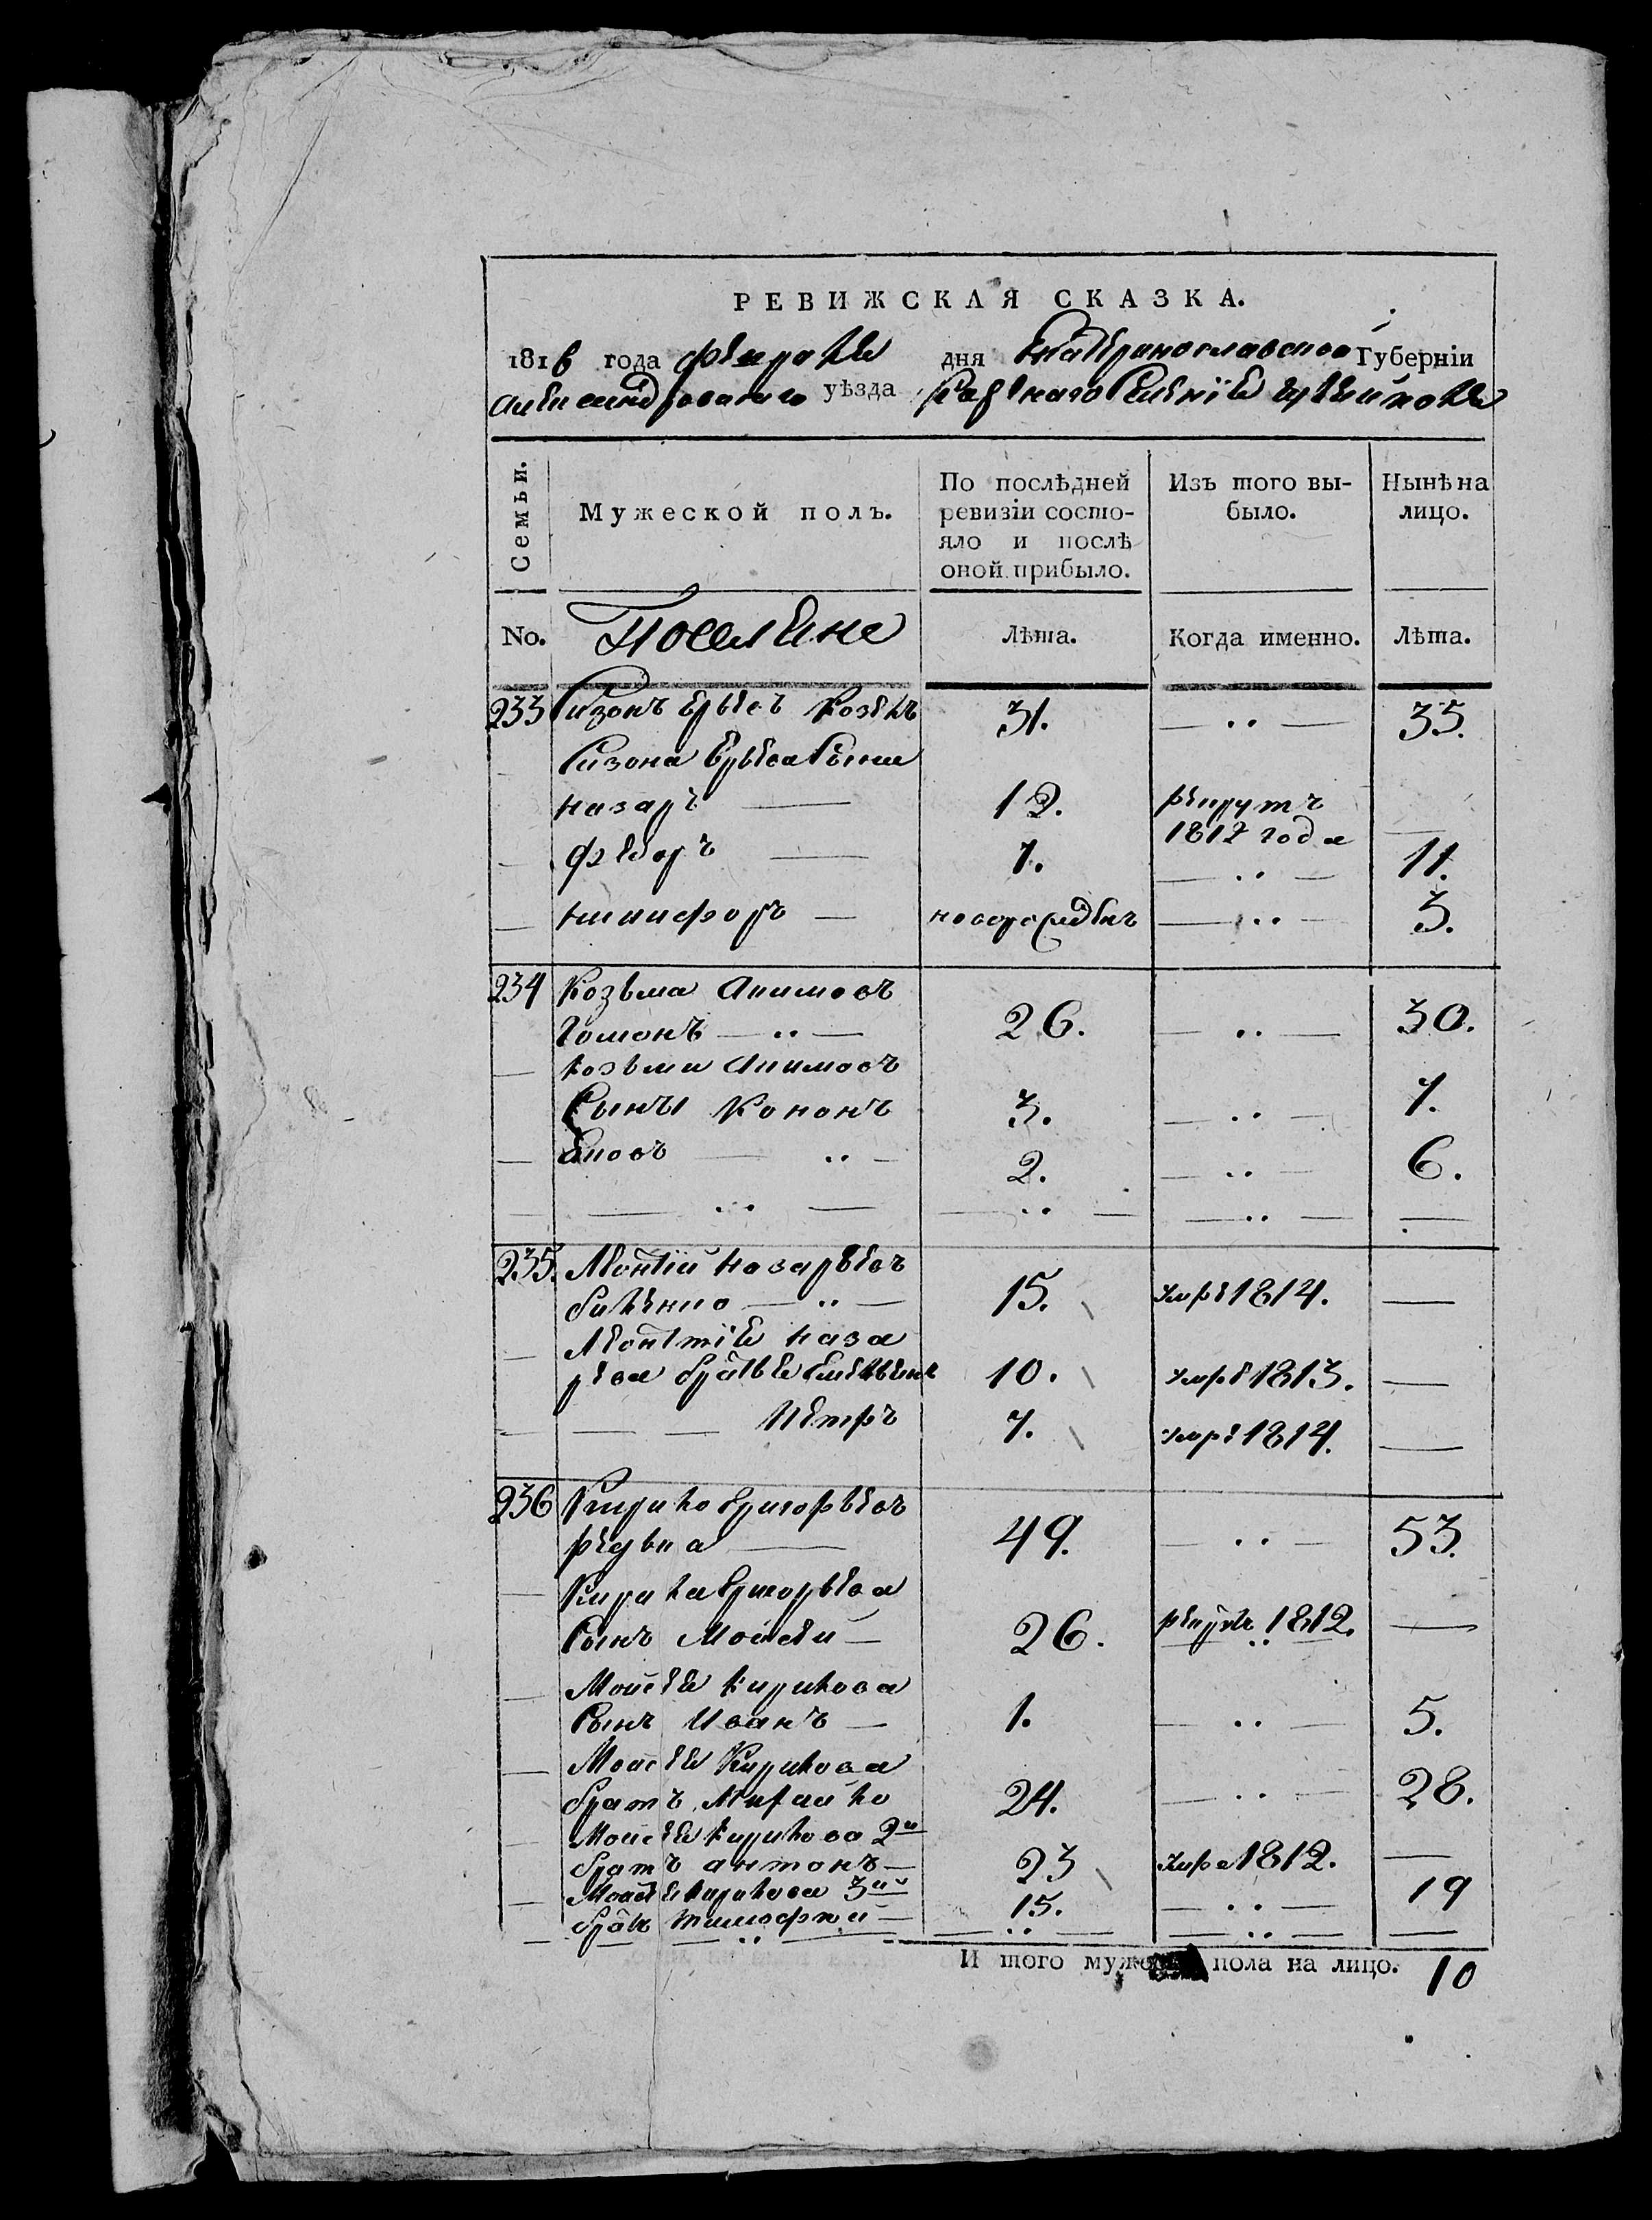 РЕВИЖСКАЯ СКАЗКА.
1816 года февраля дня Екатеринославской Губерніи
Александровского уѣзда Казенного Селенїя
Семьи.
Мужеской полъ.
По послѣдней ревизіи состо-
яло и послѣ
оной прибыло.
Изъ того вы-
было.
Нынѣ на
лицо.
No. Поселяне Лѣта. Когда именно. Лѣта.
233 Сизонъ Козелъ 31. — .. — 35.
Сизона Сыны
Назаръ — 12. рекрутъ
1812 года —
Федоръ — 7. — .. — 11.
Никифоръ — новорожденъ — .. — 3.
234 Козьма Акимовъ
Гомонъ — .. — 26. — .. — 30.
Козьми Акимова
Сыны Кононъ 3. — .. — 7.
— .. — 2. — .. — 6.
— .. — — .. — — .. — —
235. Леонтїй Назарьевъ
— .. — 15. умре 1814. —
Леонтїя Наза
рева братья 10. умре 1813. —
— — Петръ 7. умре 1814. —
236 Кирило Григорьевъ
Редька — 49. — .. — 53.
Кирила Григорьева
Сынъ Моисей — 26. рекрутъ 1812. —
Моисея Кирилова
Сынъ Иванъ — 1. — .. — 5.
Моисея Кирилова
братъ Михайло 24. — .. — 28.
Моисея Кирилова 2й
братъ антонъ — 23 умре 1812. —
Моисея Кирилова 3ий
братъ тимофей — 15. — .. — 19
— — .. — — .. — — .. — —
И того мужеска пола на лицо. 10